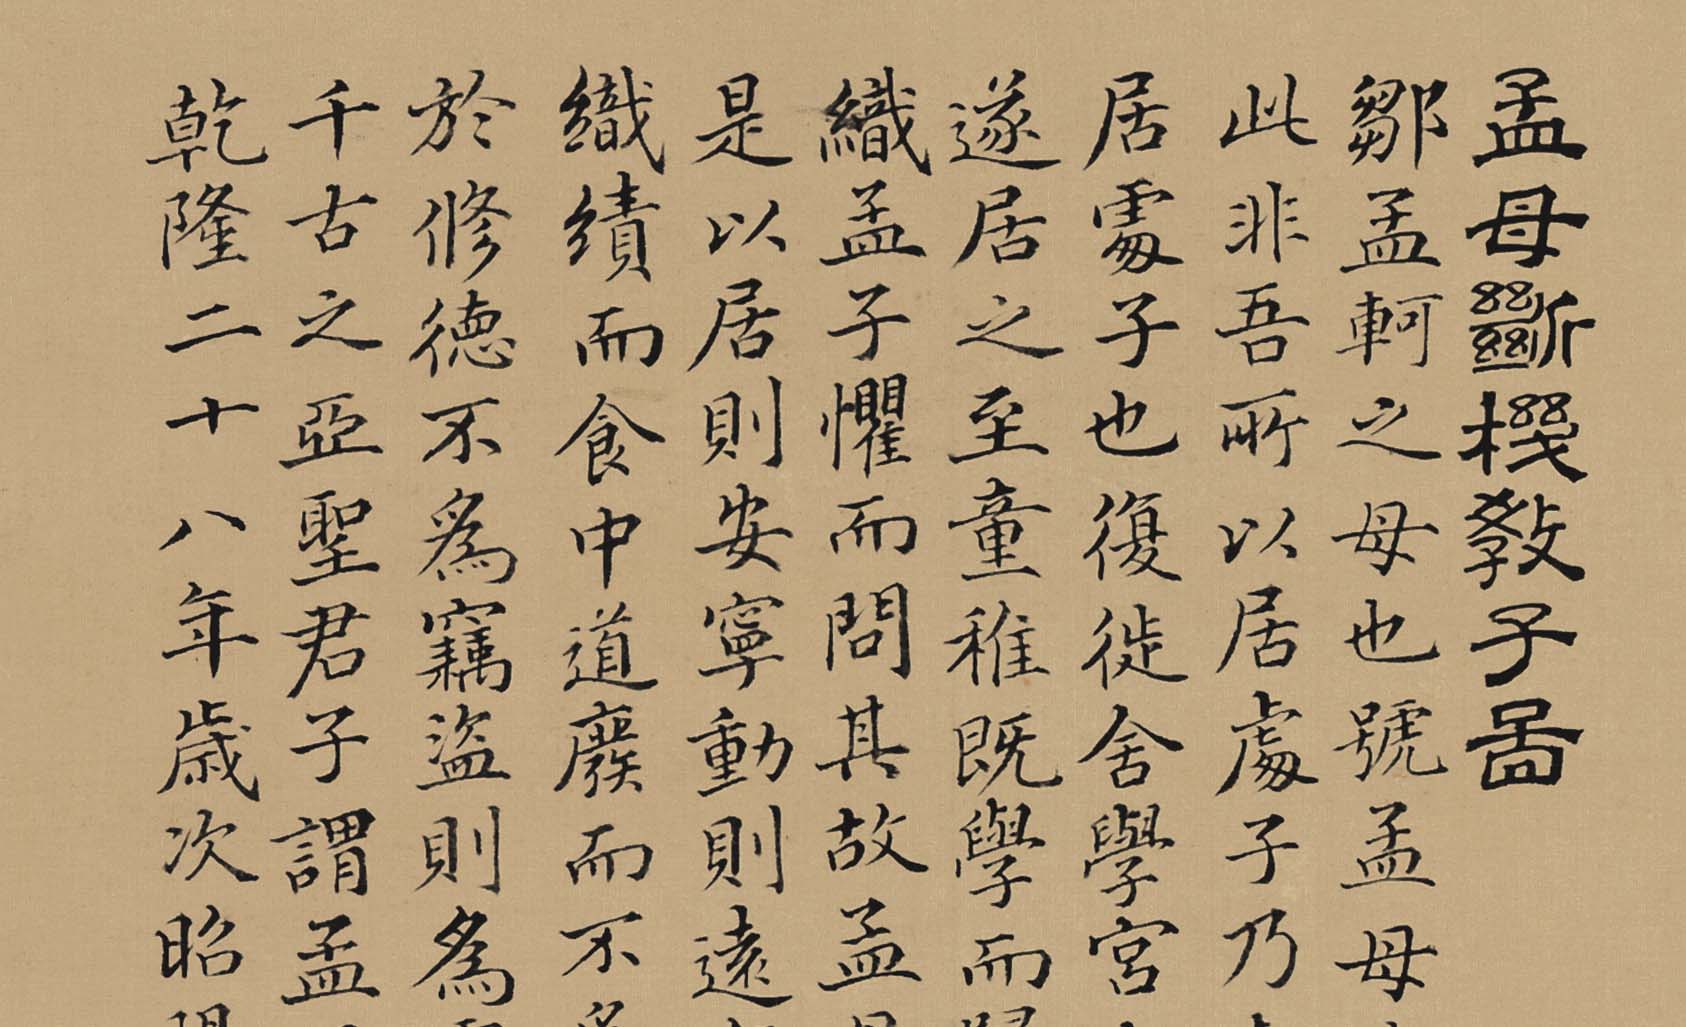 孟母斷機教子啚
鄒孟軻之母也號孟母
此非吾所以居處子乃
居處子也復徙舍學宮
遂居之至童稚既學而
織孟子懼而問其故孟
是以居則安寧動則遠
織績而食中道廢而不
於修德不為竊盜則為
千古之亞聖君子謂孟
乾隆二十八年歲次昭